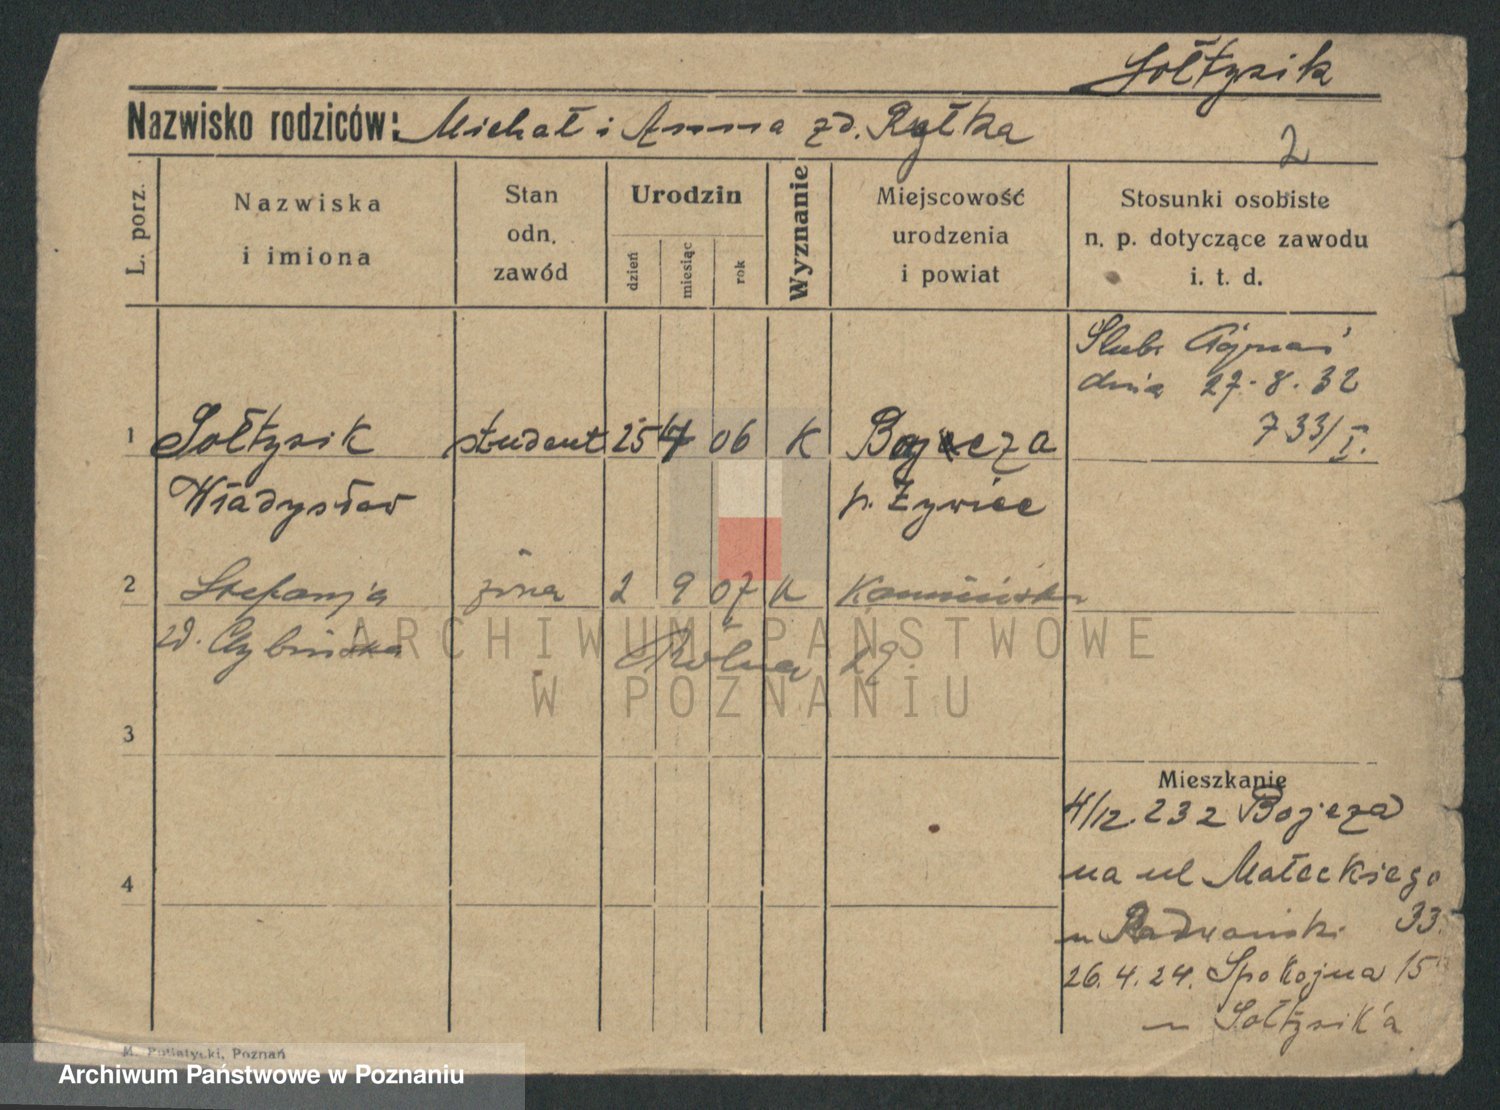 Sołtysik
Nazwisko rodziców: Michał i Anna zd. Ryłka
2
L. porz.
Nazwiska
i imiona
Stan
odn.
zawód
Urodzin
dzień
miesiąc
rok
Wyznanie
Miejscowość
urodzenia
i powiat
Stosunki osobiste
n. p. dotyczące zawodu
i. t. d.
Ślub
dnia 27.8.32
733/I.
1 Sołtysik student 25 06 K
Władysław p. Żywiec
2 Stefanja żona 2 9 07 K
zd. Cybińska Rolna 29
ARCHIWUM PAŃSTWOWE
W POZNANIU
3
Mieszkanie
4/12.232
na ul Małeckiego
4
u 33.
26.4.24. Spokojna 15
u Sołtysika
M. Putiatycki, Poznań
Archiwum Państwowe w Poznaniu